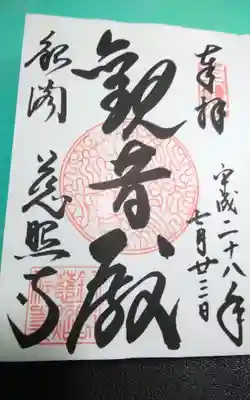 奉拝
平成二十八年
七月廿三日
観音殿
銀閣
慈照寺